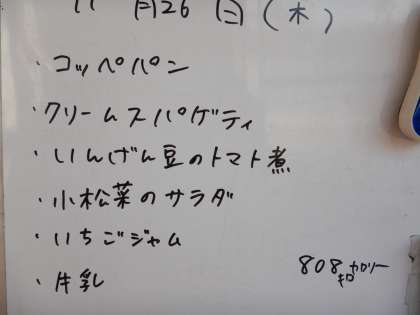 11月26日(木)
・コッペパン
・クリームスパゲティ
・いんげん豆のトマト煮
・小松菜のサラダ
・いちごジャム
・牛乳
808キロカロリー